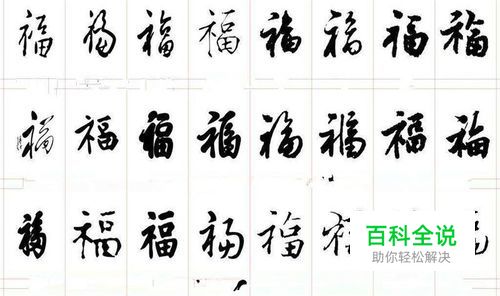 福 福 福 福 福 福 福 福
福 福 福 福 福 福 福 福
福 福 福 福 福
百科全说
助你轻松解决